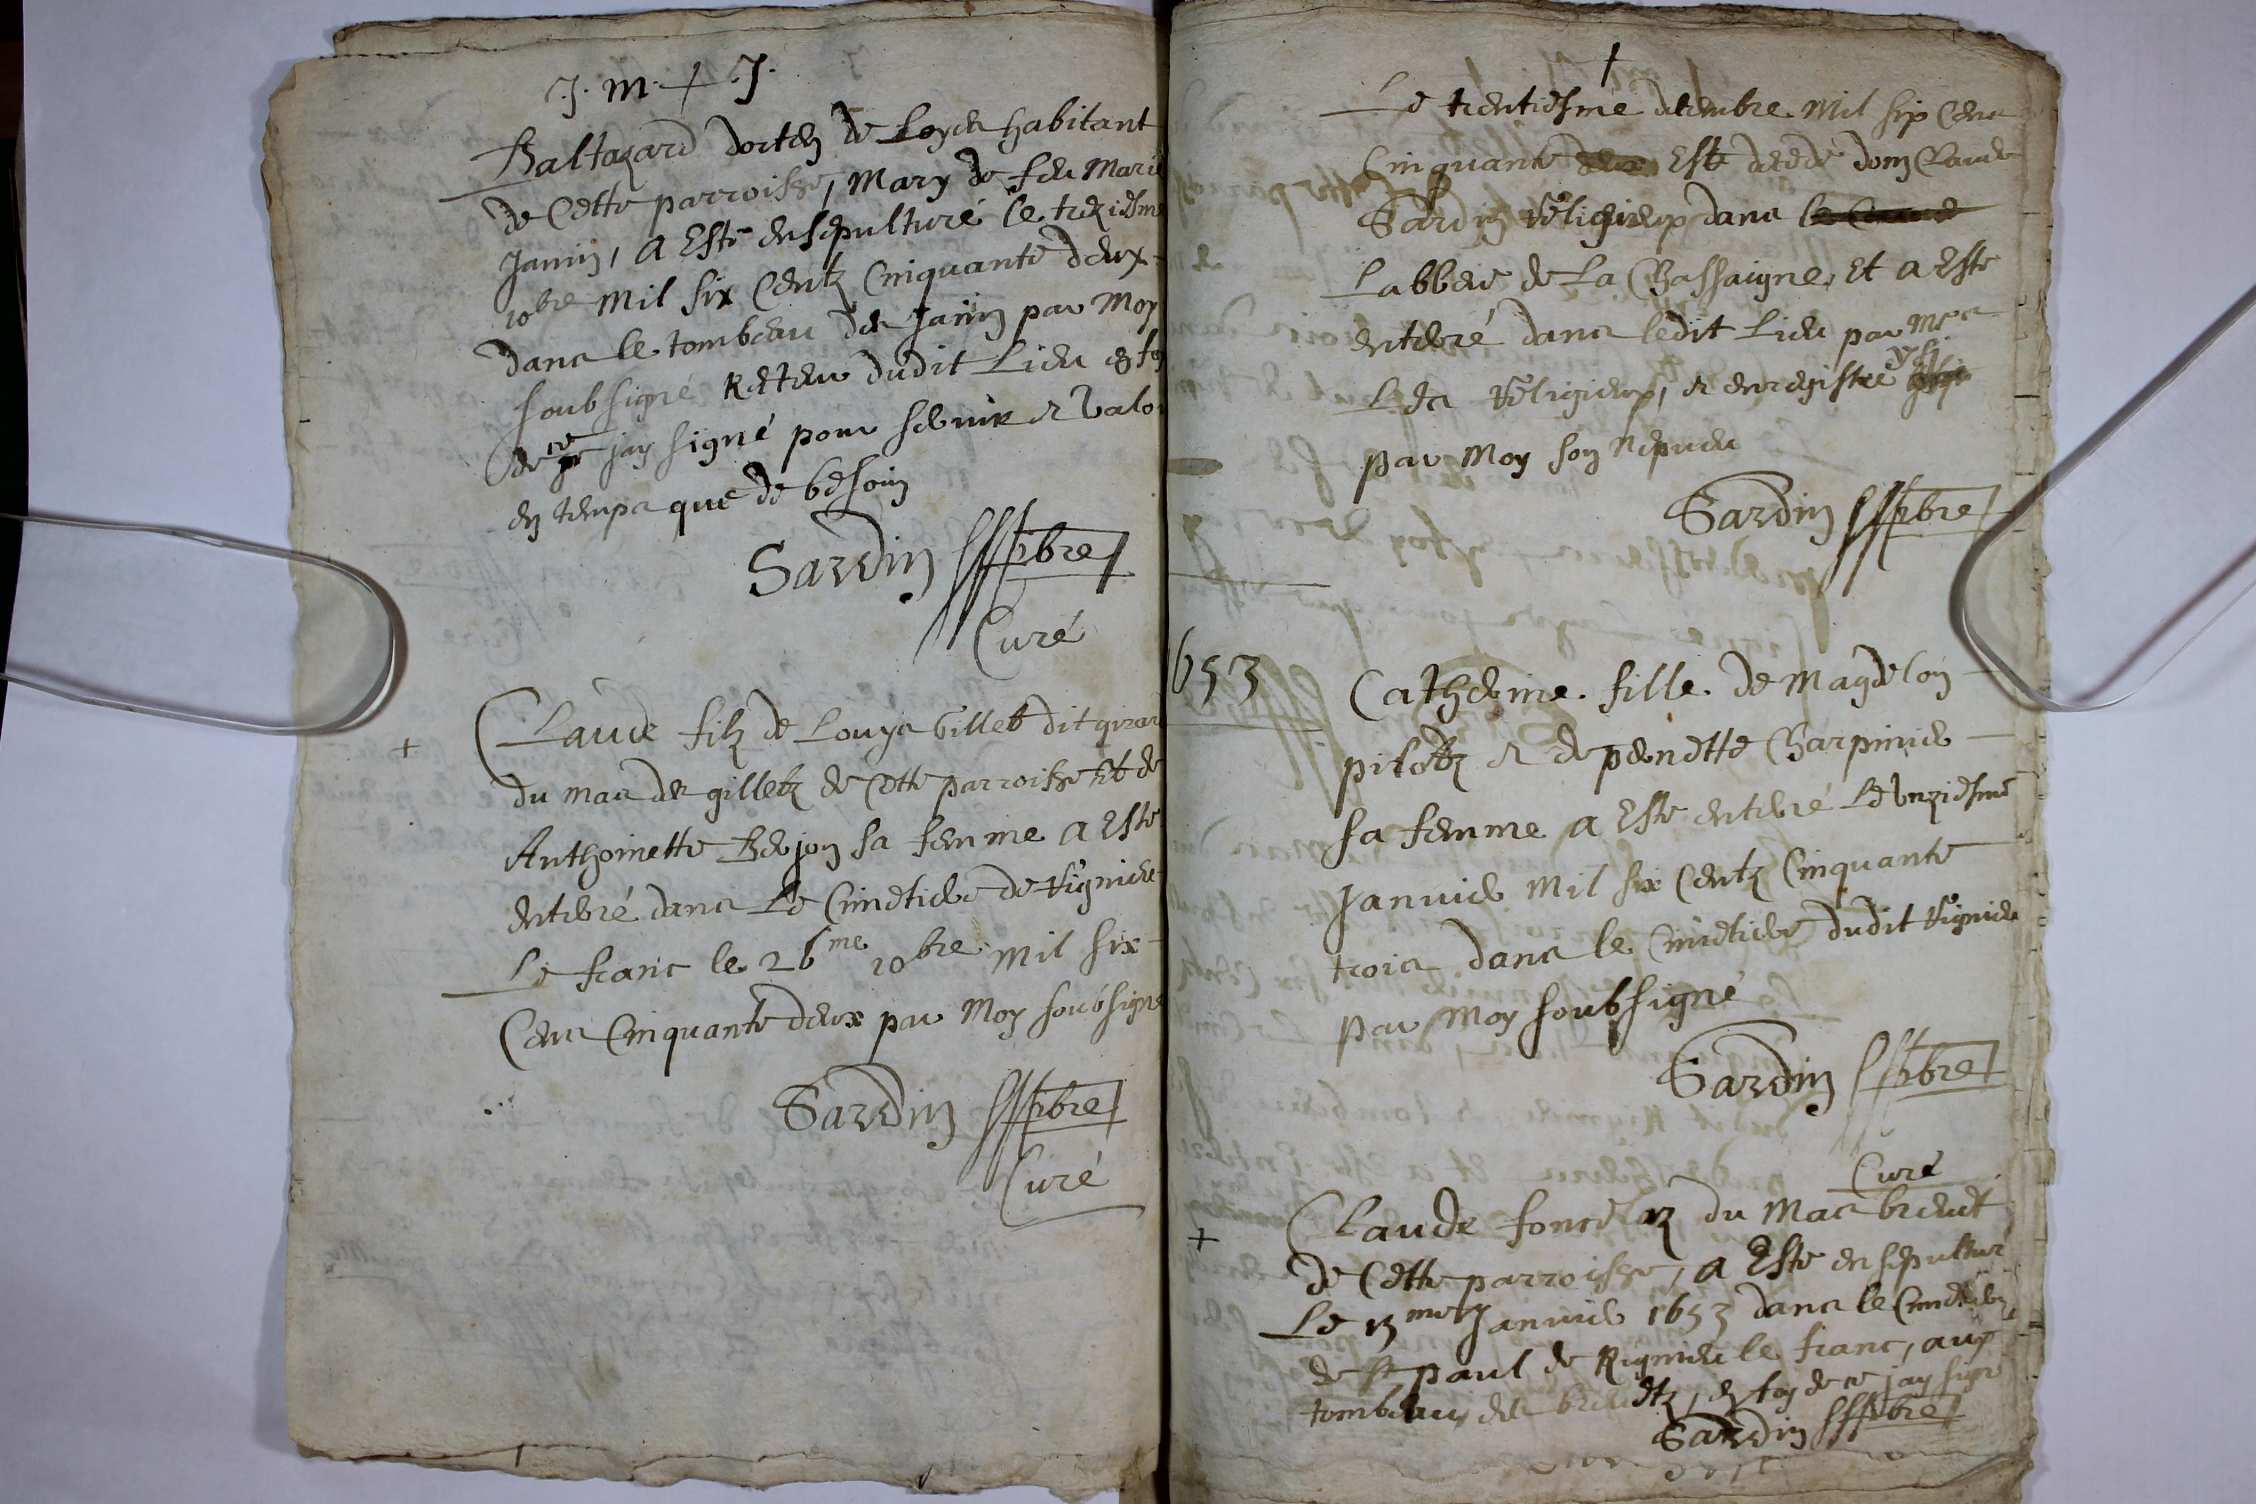 J. m. + J.
Baltazard dorten de Loyes habitant
de Cette parroisse, Mary de feu Marie
Janin, a Esté ensepulturé le treziesme
10bre Mil six Centz Cinquante deux
dans le tombeau des Janin par Moy
soubsigné Recteur dudit Lieu en foy
de ce jay signé pour servir et valoir
en temps que de besoin
Sardin pbre
Curé
+ Claude filz de Louys Gillet dit girard
du mas des gilletz de Cette parroisse Et de
Anthoinette Bejon sa femme a Esté
enterré dans Le Cimetiere de Rignieu
Le franc le 26me 10bre Mil six
Cens Cinquante deux par Moy soubsigné
Sardin pbre
Curé
+
Le trentiesme decembre Mil six Cens
Cinquante deux Est decedé dom Claude
Sardin Religieux dans
Labbeie de La Chassaigne, Et a Esté
enterré dans ledit Lieu par Mrs
Les Religieux, et enregistré ysi
par Moy son Nepueu
Sardin pbre
1653
Catherine fille de Magdelon
pilotz et de pernette Charpinie
sa femme a Esté enterré Le unziesme
Januier Mil six Centz Cinquante
trois dans le Cimetiere dudit Rignieu
par Moy soubsigné
Sardin pbre
Curé
+ Claude foncelaz du Mas breuet
de Cette parroisse, a Esté ensepulturé
Le 13me Januier 1653 dans le Cimetiere
de St paul de Rignieu le franc, aux
tombeaux des breuetz, en foy de ce jay signé
Sardin pbre